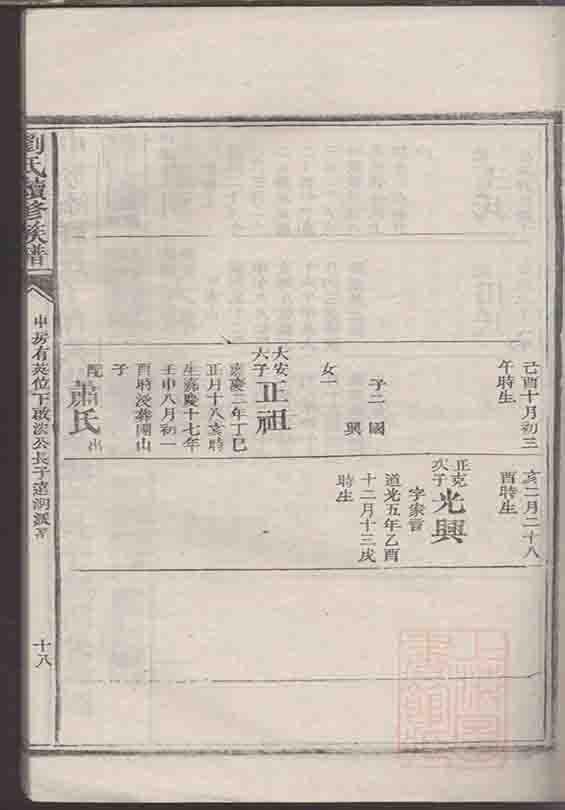 己酉十月初三
午時生
子二 國
興
女一
大安
六子
正祖
嘉慶二年丁巳
正月十八亥時
生嘉慶十七年
壬申八月初一
酉時沒葬園山
子
配
蕭氏
出
亥二月二十八
酉時生
正克
次子
光興
字家言
道光五年乙酉
十二月十三戌
時生
劉氏續修族譜
中房有英位下啟深公長子達潤派
十八